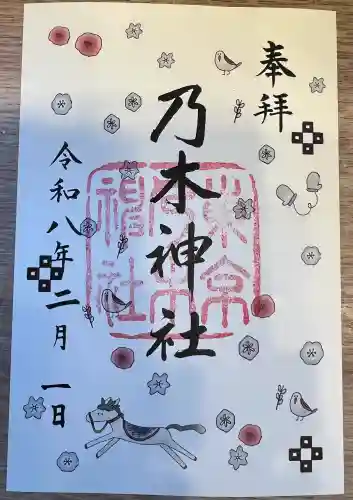 奉拝
乃木神社
東京乃木神社
令和八年二月一日